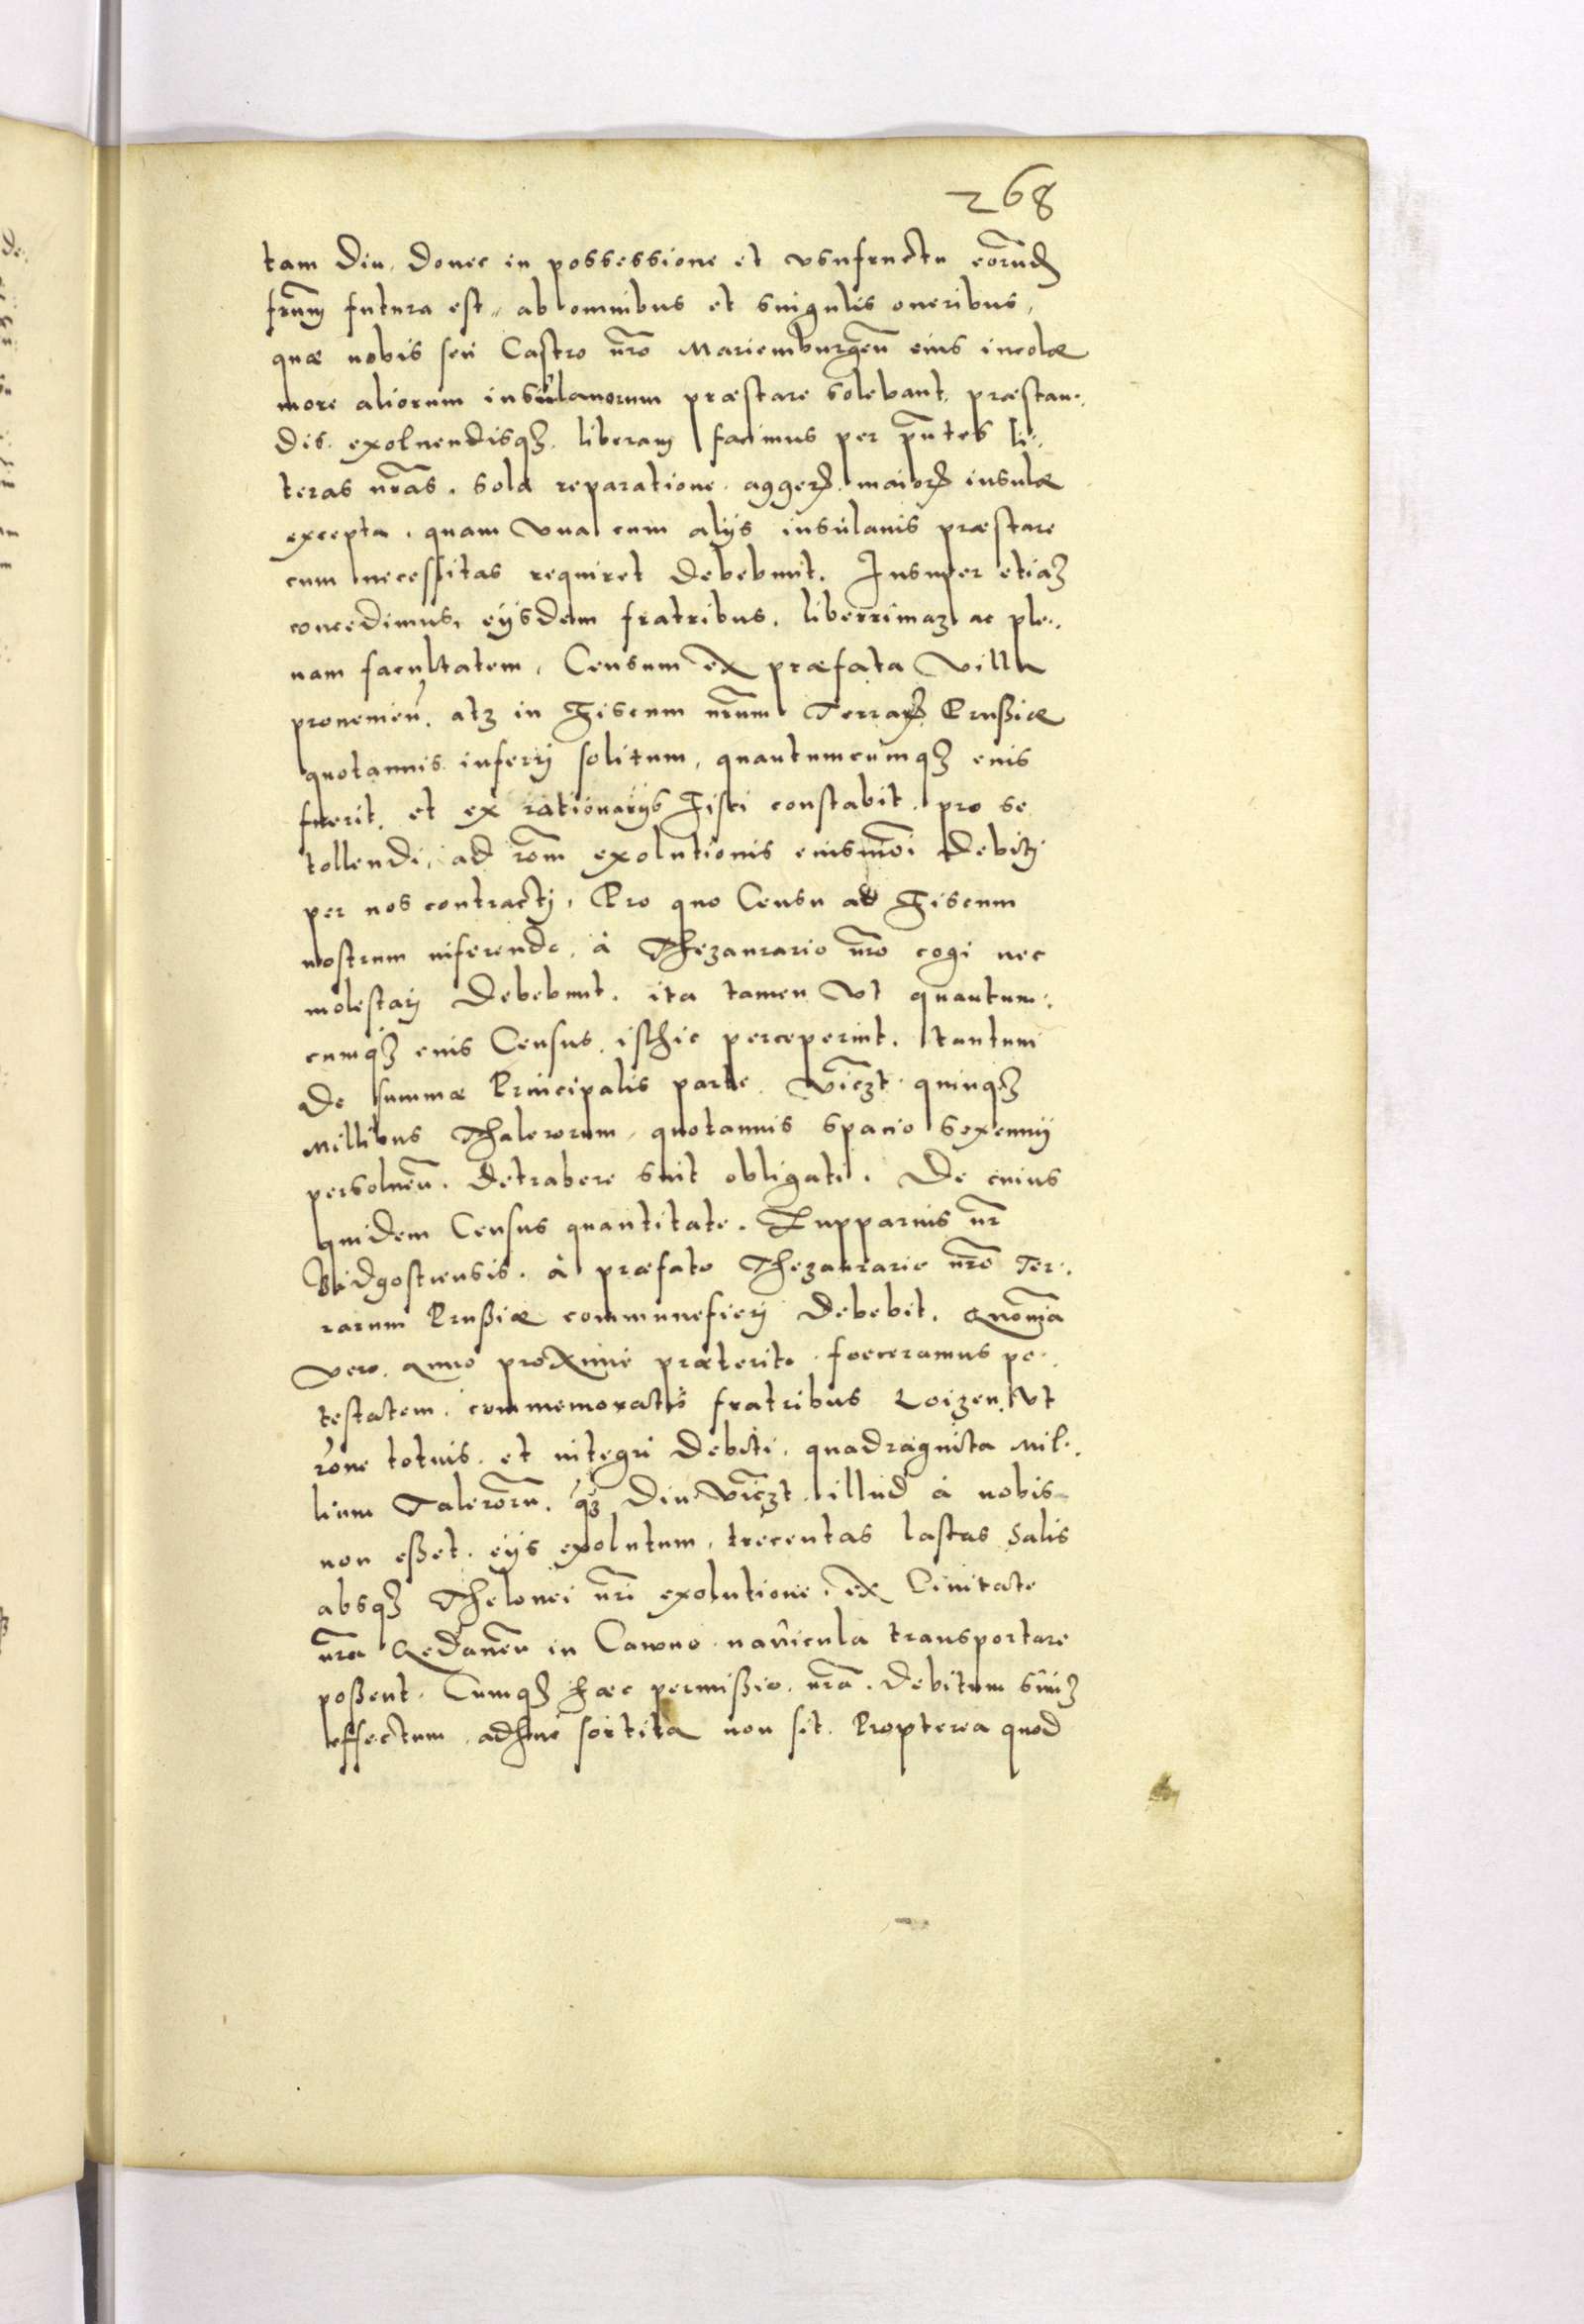 268
tam diu, donec in possessione et usufructu eorund
frum futura est, ab omnibus et singulis oneribus,
quæ nobis seu Castro nro Mariemburgen eius incolæ
more aliorum insulanorum præstare solebant, præstan:
dis exoluendisqz liberam facimus per pntes li:
teras nras. sola reparatione aggerum maiorum insulæ
excepta, quam vna cum alijs insulanis præstare
cum necessitas requiret debebunt. Insuper etiaz
concedimus, eijsdem fratribus, liberrimaz ac ple:
nam facultatem, Censum ex præfata villa
prouenien, atz in Fiscum nrum Terrarum Prussiæ
quotannis inferrj solitum, quantumcumqz enis
fuerit, et ex rationarijs Fisci constabit, pro se
tollendi, ad rom exolutionis eiusmoi debitj
per nos contractj, Pro quo Censu ad Fiscum
nostrum inferendo, à Thezaurario nro cogi nec
molestarj debebunt. ita tamen vt quantum:
cumqz enis Census, isthic perceperint, tantum
de summæ Principalis parte, viczt quinqz
Millibus Thalerorum, quotannis spacio sexennij
persoluen, detrahere sint obligati. De cuius
quidem Census quantitate, Supparius nr
Bidgostiensis, à præfato Thezaurario nro Ter:
rarum Prussiæ communefierj debebit. Quoniam
vero anno proxime præterito foeceramus po:
testatem, commemoratis fratribus Loizen, vt
rone totius et integri debiti, quadraginta Mil:
lium Taleroru, qz diu viczt illud à nobis
non esset eijs exolutum, trecentas lastas Salis
absqz Thelonei nri exolutione, ex Ciuitate
nra Gedanen in Cawno nauicula transportare
possent. Cumqz hæc permissio nra, debitum suuz
effectum adhuc sortita non sit. Propterea quod